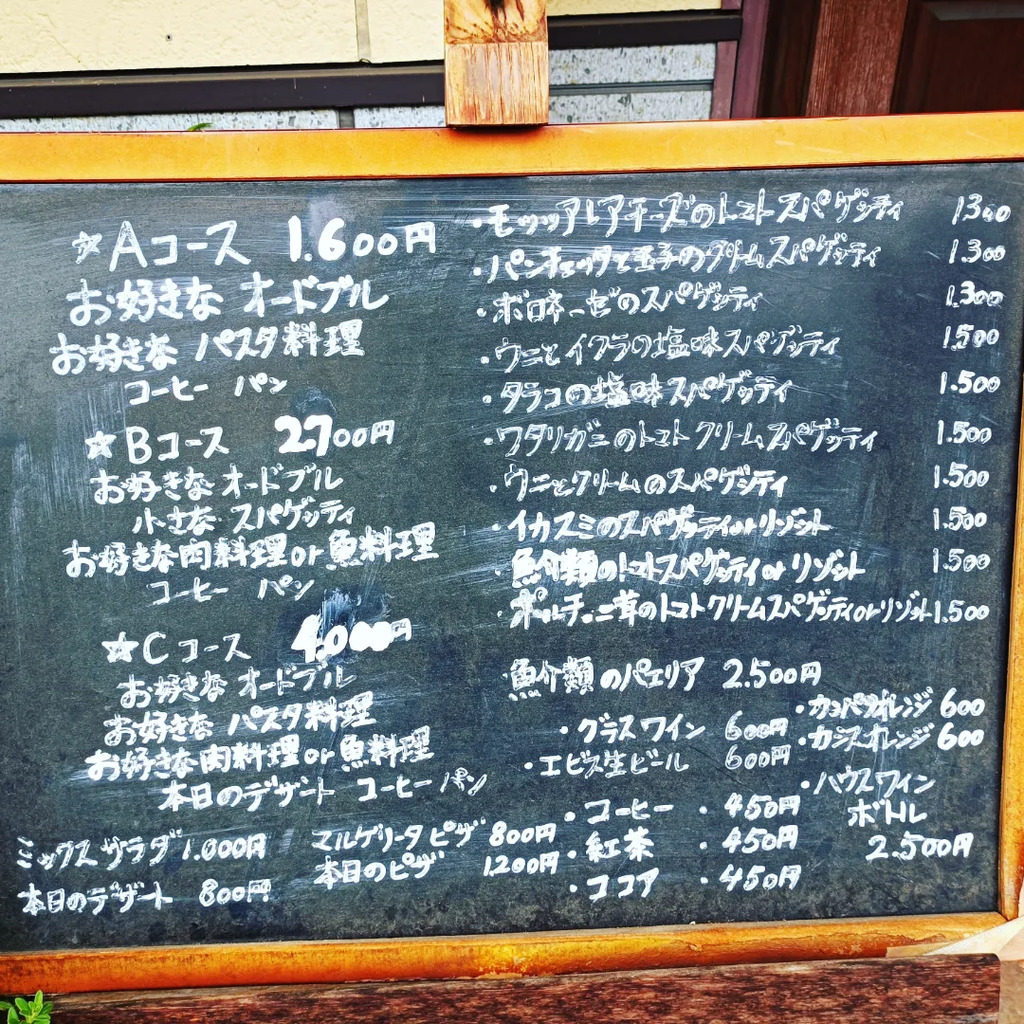 ☆Aコース 1.600円
お好きな オードブル
お好きな パスタ料理
コーヒー パン
☆Bコース 2.700円
お好きな オードブル
小さな スパゲッティ
お好きな肉料理or魚料理
コーヒー パン
☆Cコース 4.000円
お好きな オードブル
お好きな パスタ料理
お好きな肉料理or魚料理
本日のデザート コーヒー パン
ミックスサラダ 1.000円
本日のデザート 800円
マルゲリータピザ 800円
本日のピザ 1200円
・モッツアレアチーズのトマトスパゲッティ 1300
・パンチェッタと玉子のクリームスパゲッティ 1.300
・ボロネーゼのスパゲッティ 1.300
・ウニとイクラの塩味スパゲッティ 1.500
・タラコの塩味スパゲッティ 1.500
・ワタリガニのトマトクリームスパゲッティ 1.500
・ウニとクリームのスパゲッティ 1.500
・イカスミのスパゲッティorリゾット 1.500
・魚介類のトマトスパゲッティorリゾット 1.500
・ポルチーニ茸のトマトクリームスパゲッティorリゾット 1.500
魚介類のパエリア 2.500円
・グラスワイン 600円
・エビス生ビール 600円
・コーヒー ・450円
・紅茶 ・450円
・ココア ・450円
・カンパリオレンジ 600
・カシスオレンジ 600
・ハウスワイン
ボトル
2.500円